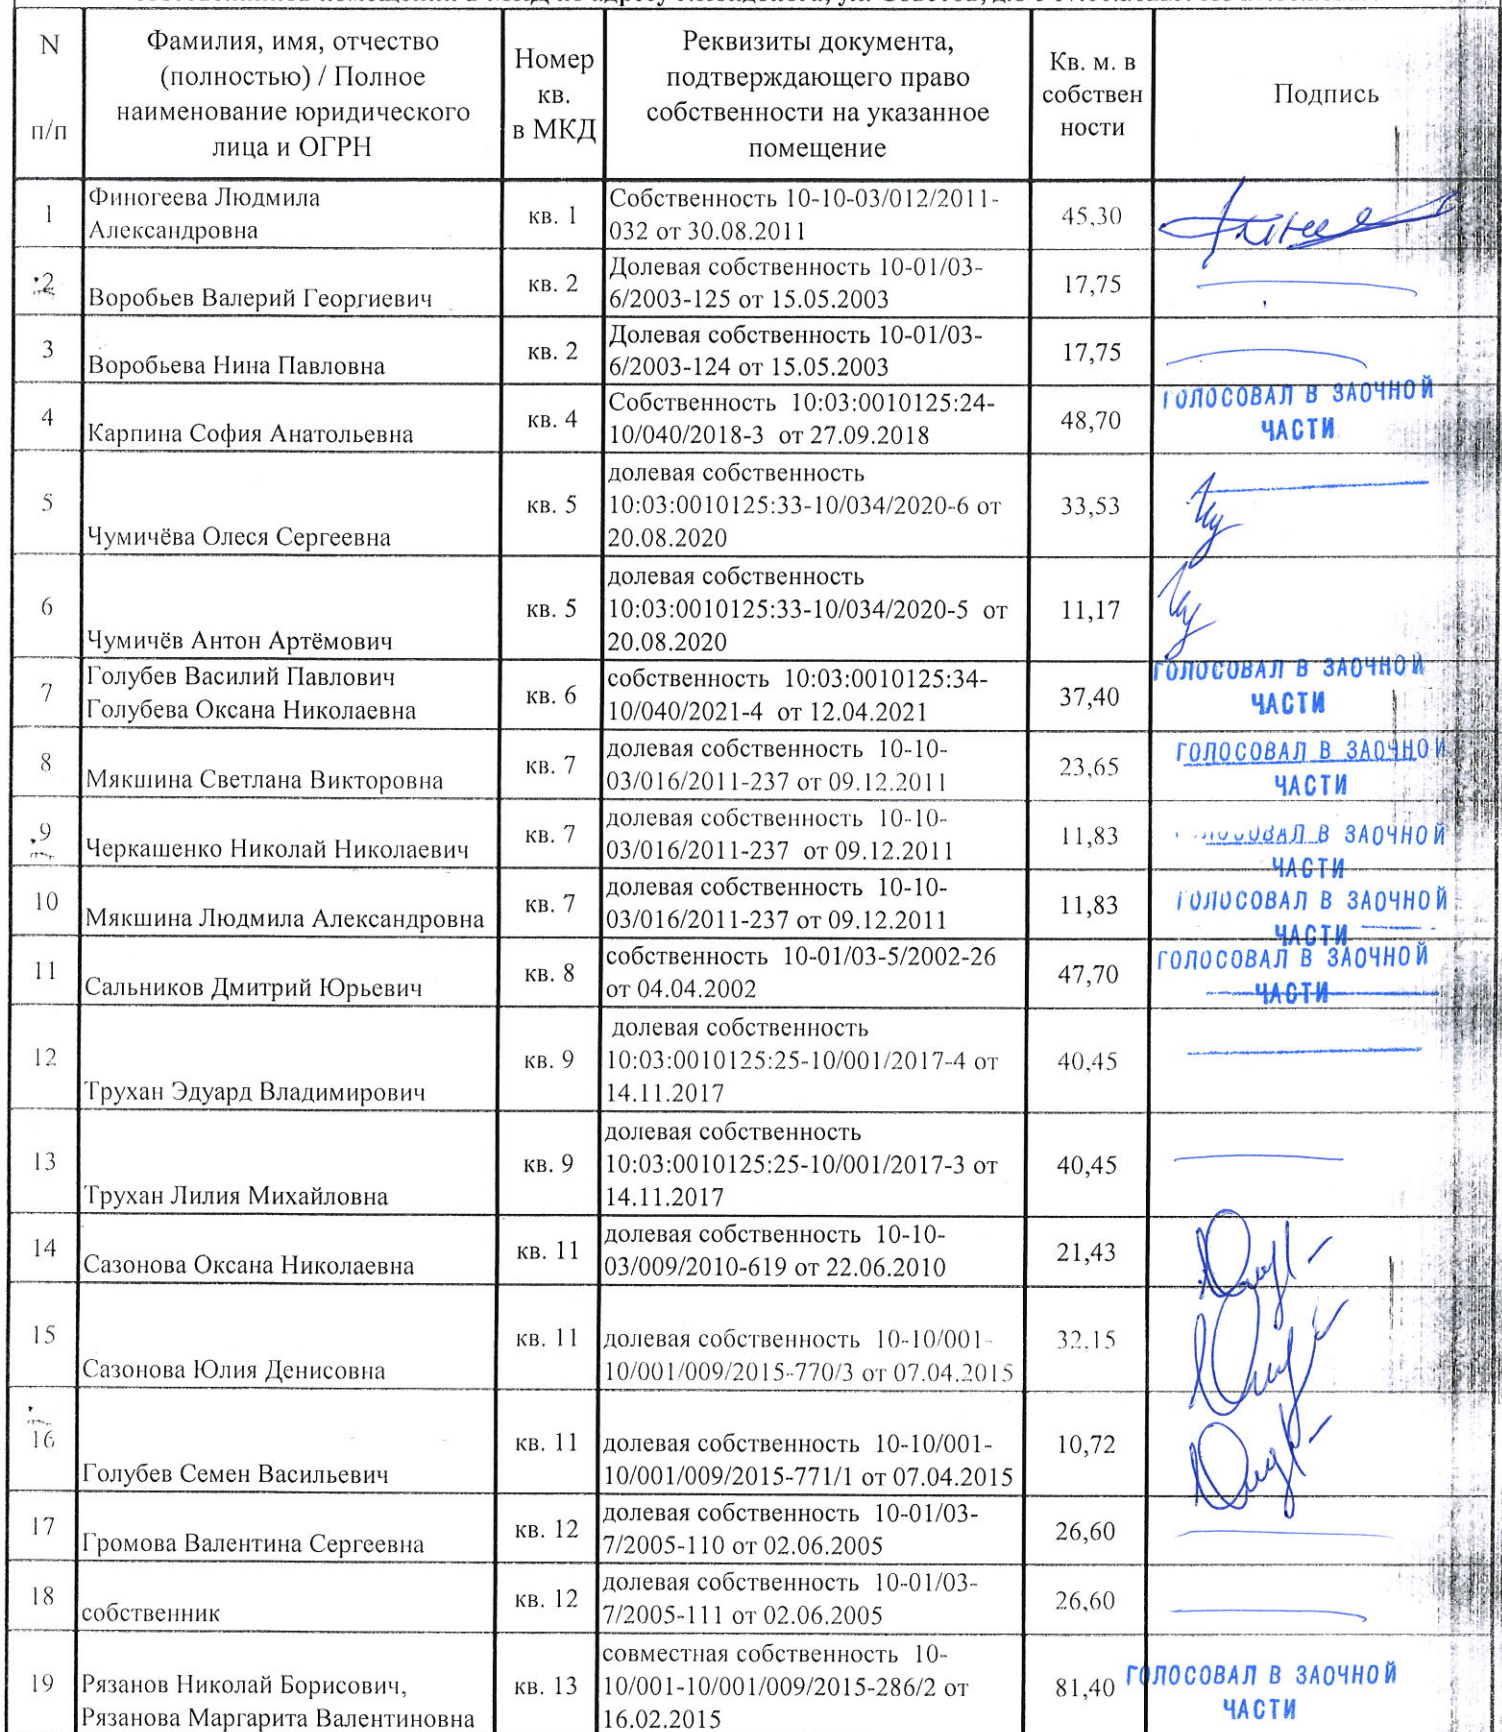 N
п/п
Фамилия, имя, отчество
(полностью) / Полное
наименование юридического
лица и ОГРН
Номер
кв.
в МКД
Реквизиты документа,
подтверждающего право
собственности на указанное
помещение
Кв. м. в
собствен
ности
Подпись
1
Финогеева Людмила
Александровна
кв. 1
Собственность 10-10-03/012/2011-
032 от 30.08.2011
45,30
2
Воробьев Валерий Георгиевич
кв. 2
Долевая собственность 10-01/03-
6/2003-125 от 15.05.2003
17,75
3
Воробьева Нина Павловна
кв. 2
Долевая собственность 10-01/03-
6/2003-124 от 15.05.2003
17,75
4
Карпина София Анатольевна
кв. 4
Собственность 10:03:0010125:24-
10/040/2018-3 от 27.09.2018
48,70
ГОЛОСОВАЛ В ЗАОЧНОЙ
ЧАСТИ
5
Чумичёва Олеся Сергеевна
кв. 5
долевая собственность
10:03:0010125:33-10/034/2020-6 от
20.08.2020
33,53
6
Чумичёв Антон Артёмович
кв. 5
долевая собственность
10:03:0010125:33-10/034/2020-5 от
20.08.2020
11,17
7
Голубев Василий Павлович
Голубева Оксана Николаевна
кв. 6
собственность 10:03:0010125:34-
10/040/2021-4 от 12.04.2021
37,40
ГОЛОСОВАЛ В ЗАОЧНОЙ
ЧАСТИ
8
Мякшина Светлана Викторовна
кв. 7
долевая собственность 10-10-
03/016/2011-237 от 09.12.2011
23,65
ГОЛОСОВАЛ В ЗАОЧНОЙ
ЧАСТИ
9
Черкашенко Николай Николаевич
кв. 7
долевая собственность 10-10-
03/016/2011-237 от 09.12.2011
11,83
ГОЛОСОВАЛ В ЗАОЧНОЙ
ЧАСТИ
10
Мякшина Людмила Александровна
кв. 7
долевая собственность 10-10-
03/016/2011-237 от 09.12.2011
11,83
ГОЛОСОВАЛ В ЗАОЧНОЙ
ЧАСТИ
11
Сальников Дмитрий Юрьевич
кв. 8
собственность 10-01/03-5/2002-26
от 04.04.2002
47,70
ГОЛОСОВАЛ В ЗАОЧНОЙ
ЧАСТИ
12
Трухан Эдуард Владимирович
кв. 9
долевая собственность
10:03:0010125:25-10/001/2017-4 от
14.11.2017
40,45
13
Трухан Лилия Михайловна
кв. 9
долевая собственность
10:03:0010125:25-10/001/2017-3 от
14.11.2017
40,45
14
Сазонова Оксана Николаевна
кв. 11
долевая собственность 10-10-
03/009/2010-619 от 22.06.2010
21,43
15
Сазонова Юлия Денисовна
кв. 11
долевая собственность 10-10/001-
10/001/009/2015-770/3 от 07.04.2015
32,15
16
Голубев Семен Васильевич
кв. 11
долевая собственность 10-10/001-
10/001/009/2015-771/1 от 07.04.2015
10,72
17
Громова Валентина Сергеевна
кв. 12
долевая собственность 10-01/03-
7/2005-110 от 02.06.2005
26,60
18
собственник
кв. 12
долевая собственность 10-01/03-
7/2005-111 от 02.06.2005
26,60
19
Рязанов Николай Борисович,
Рязанова Маргарита Валентиновна
кв. 13
совместная собственность 10-
10/001-10/001/009/2015-286/2 от
16.02.2015
81,40
ГОЛОСОВАЛ В ЗАОЧНОЙ
ЧАСТИ